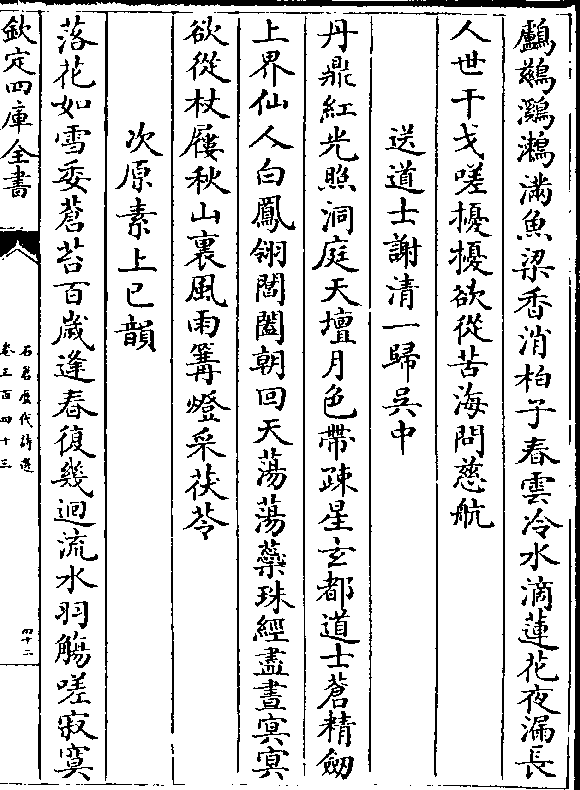 鸕鷀鸂鷘滿魚梁香消柏子春雲冷水滴蓮花夜漏長
人世干戈嗟擾擾欲從苦海問慈航
送道士謝清一歸吳中
丹鼎紅光照洞庭天壇月色帶疎星玄都道士蒼精劒
上界仙人白鳳翎閶闔朝回天蕩蕩蘂珠經盡晝冥冥
欲從杖屨秋山裏風雨篝燈采茯苓
次原素上巳韻
落花如雪委蒼苔百歲逢春復幾迴流水羽觴嗟寂寞
欽定四庫全書
石倉歷代詩選
卷三百四十三
四十二